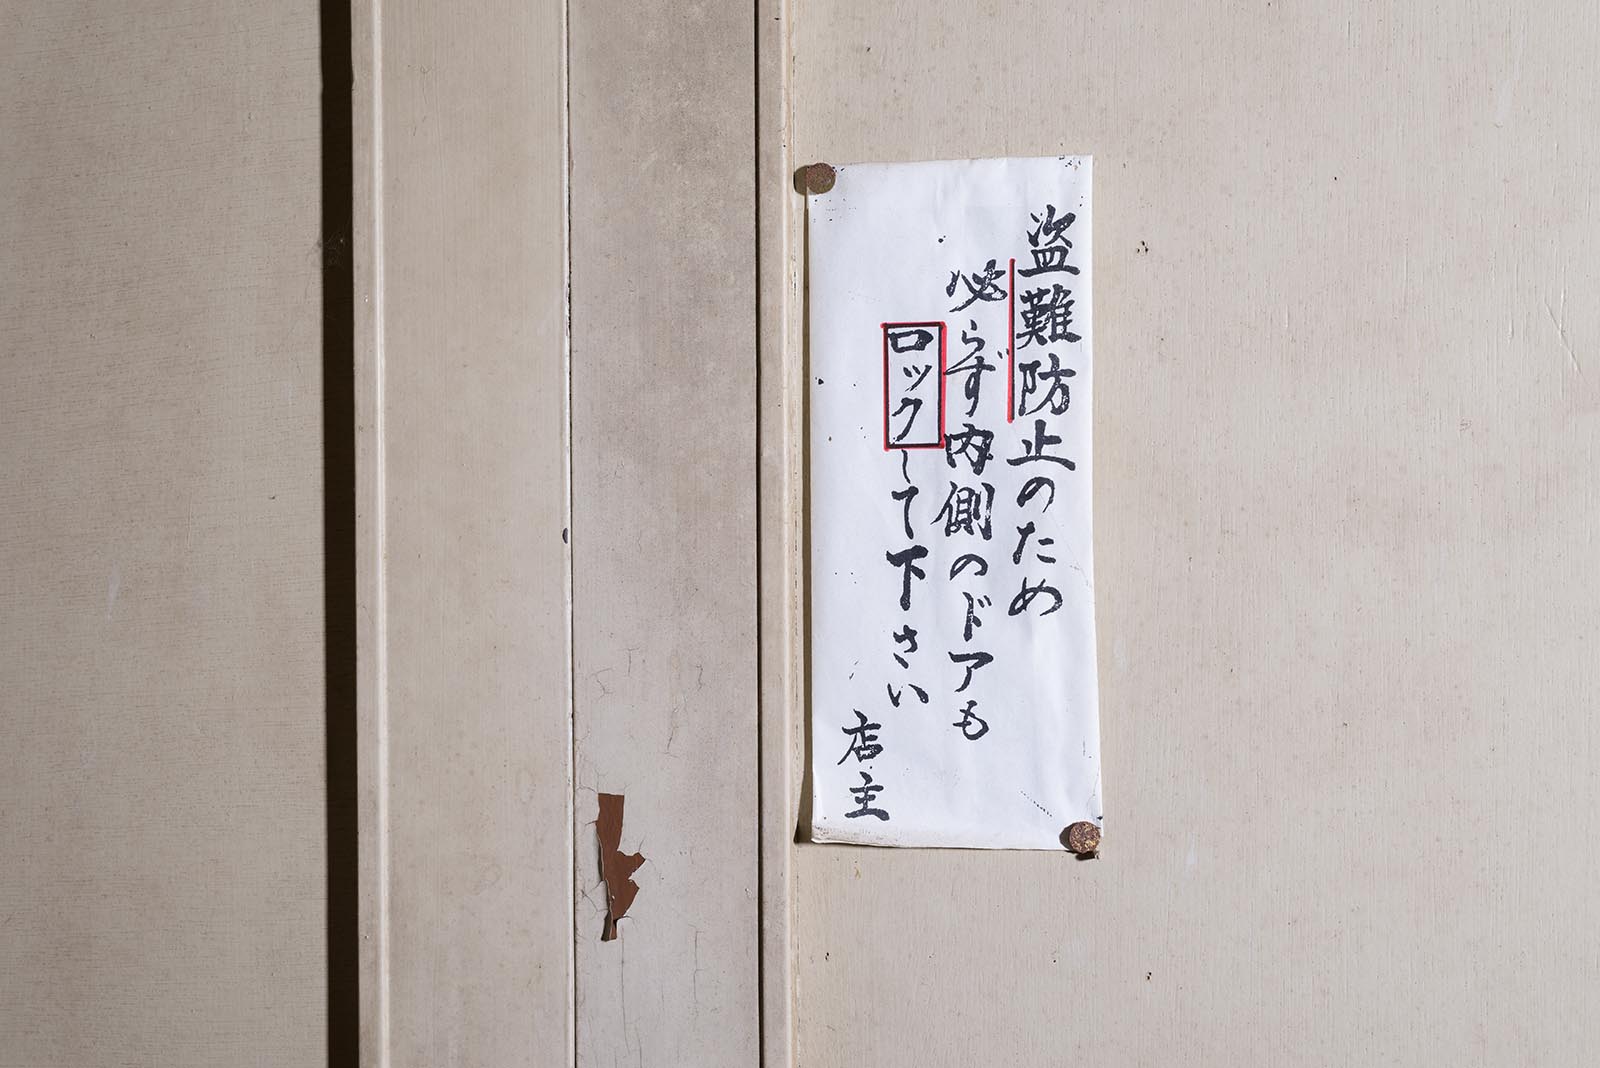 盗難防止のため
必らず内側のドアも
ロックして下さい
店主